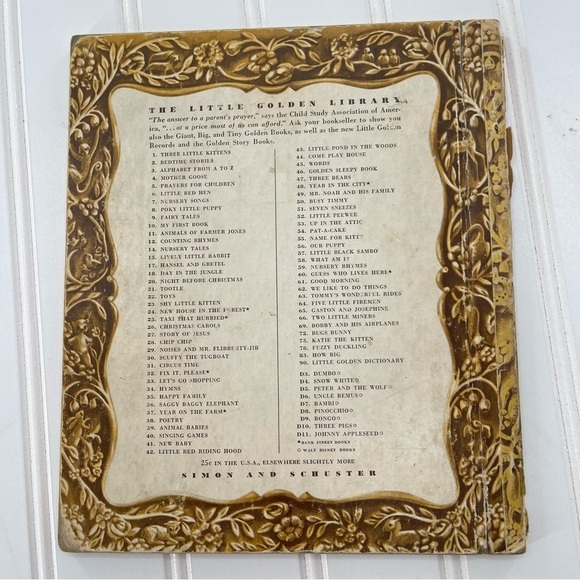 THE LITTLE GOLDEN LIBRARY
"The answer to a parent's prayer," says the Child Study Association of Amer-
ica, "...at a price most of us can afford." Ask your bookseller to show you
also the Giant, Big, and Tiny Golden Books, as well as the new Little Golden
Records and the Golden Story Books.
1. THREE LITTLE KITTENS
2. BEDTIME STORIES
3. ALPHABET FROM A TO Z
4. MOTHER GOOSE
5. PRAYERS FOR CHILDREN
6. LITTLE RED HEN
7. NURSERY SONGS
8. POKY LITTLE PUPPY
9. FAIRY TALES
10. MY FIRST BOOK
11. ANIMALS OF FARMER JONES
12. COUNTING RHYMES
14. NURSERY TALES
15. LIVELY LITTLE RABBIT
17. HANSEL AND GRETEL
18. DAY IN THE JUNGLE
20. NIGHT BEFORE CHRISTMAS
21. TOOTLE
22. TOYS
23. SHY LITTLE KITTEN
24. NEW HOUSE IN THE FOREST★
25. TAXI THAT HURRIED★
26. CHRISTMAS CAROLS
27. STORY OF JESUS
28. CHIP CHIP
29. NOISES AND MR. FLIBBERTY-JIB
30. SCUFFY THE TUGBOAT
31. CIRCUS TIME
32. FIX IT, PLEASE★
33. LET'S GO SHOPPING
34. HYMNS
35. HAPPY FAMILY
36. SAGGY BAGGY ELEPHANT
37. YEAR ON THE FARM★
38. POETRY
39. ANIMAL BABIES
40. SINGING GAMES
41. NEW BABY
42. LITTLE RED RIDING HOOD
43. LITTLE POND IN THE WOODS
44. COME PLAY HOUSE
45. WORDS
46. GOLDEN SLEEPY BOOK
47. THREE BEARS
48. YEAR IN THE CITY★
49. MR. NOAH AND HIS FAMILY
50. BUSY TIMMY
51. SEVEN SNEEZES
52. LITTLE PEEWEE
53. UP IN THE ATTIC
54. PAT-A-CAKE
55. NAME FOR KITTY
56. OUR PUPPY
57. LITTLE BLACK SAMBO
58. WHAT AM I?
59. NURSERY RHYMES
60. GUESS WHO LIVES HERE★
61. GOOD MORNING
62. WE LIKE TO DO THINGS
63. TOMMY'S WONDERFUL RIDES
64. FIVE LITTLE FIREMEN
65. GASTON AND JOSEPHINE
66. TWO LITTLE MINERS
69. BOBBY AND HIS AIRPLANES
72. BUGS BUNNY
75. KATIE THE KITTEN
78. FUZZY DUCKLING
83. HOW BIG
90. LITTLE GOLDEN DICTIONARY
D3. DUMBO✩
D4. SNOW WHITE✩
D5. PETER AND THE WOLF✩
D6. UNCLE REMUS✩
D7. BAMBI✩
D8. PINOCCHIO✩
D9. BONGO✩
D10. THREE PIGS✩
D11. JOHNNY APPLESEED✩
★BANK STREET BOOKS
✩ WALT DISNEY BOOKS
25¢ IN THE U.S.A., ELSEWHERE SLIGHTLY MORE
SIMON AND SCHUSTER